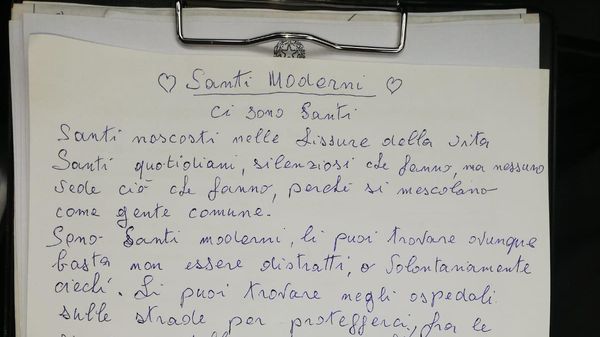 ♡ Santi Moderni ♡
Ci sono Santi
Santi nascosti nelle fissure della vita
Santi quotidiani, silenziosi che fanno, ma nessuno
vede ciò che fanno, perché si mescolano
come gente comune.
Sono Santi moderni, li puoi trovare ovunque
basta non essere distratti, o volontariamente
ciechi. Li puoi trovare negli ospedali
sulle strade per proteggerci, fra le